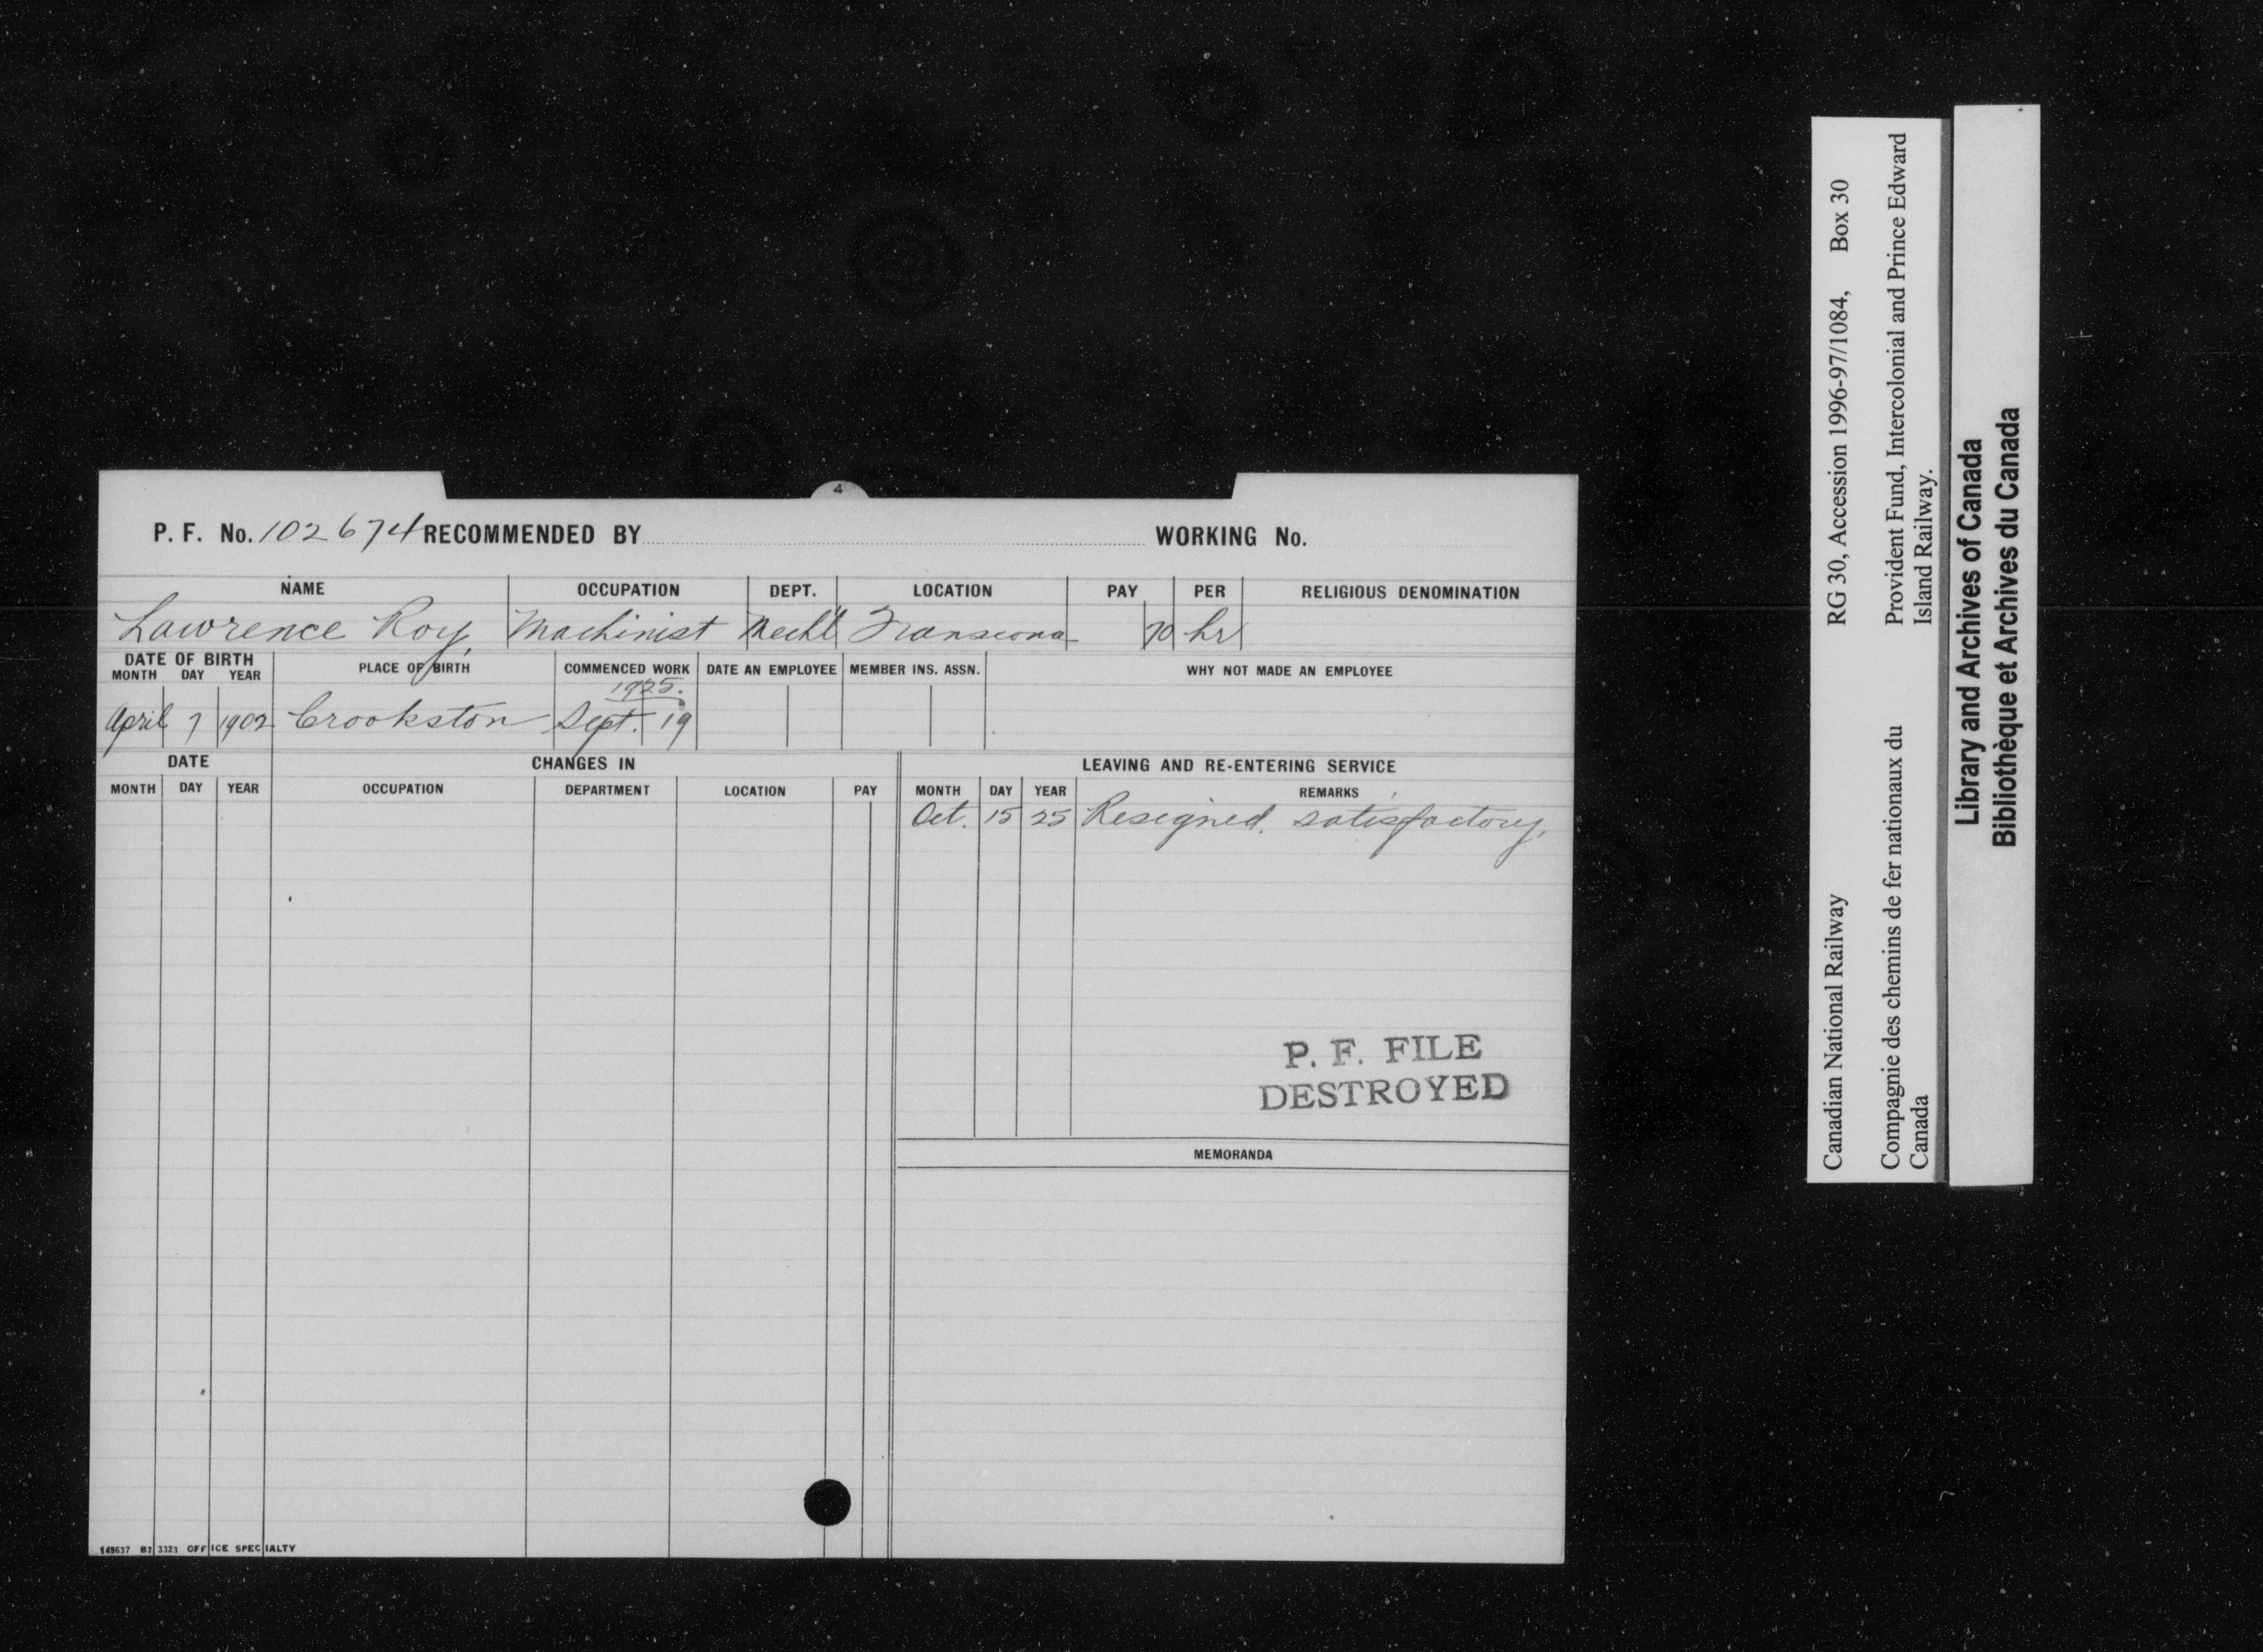 4
P. F. No. 102674 RECOMMENDED BY WORKING No.
NAME OCCUPATION DEPT. LOCATION PAY PER RELIGIOUS DENOMINATION
Lawrence Roy, Machinist Mechl Transcona 70 hr
DATE OF BIRTH PLACE OF BIRTH COMMENCED WORK DATE AN EMPLOYEE MEMBER INS. ASSN. WHY NOT MADE AN EMPLOYEE
MONTH DAY YEAR
1925.
April 7 1902 Crookston Sept. 19
DATE CHANGES IN LEAVING AND RE-ENTERING SERVICE
MONTH DAY YEAR OCCUPATION DEPARTMENT LOCATION PAY MONTH DAY YEAR REMARKS
Oct. 15 25 Resigned. satisfactory.
P. F. FILE
DESTROYED
MEMORANDA
148637 B2 3323 OFFICE SPECIALTY
Canadian National Railway RG 30, Accession 1996-97/1084, Box 30
Compagnie des chemins de fer nationaux du Provident Fund, Intercolonial and Prince Edward
Canada Island Railway.
Library and Archives of Canada
Bibliothèque et Archives du Canada